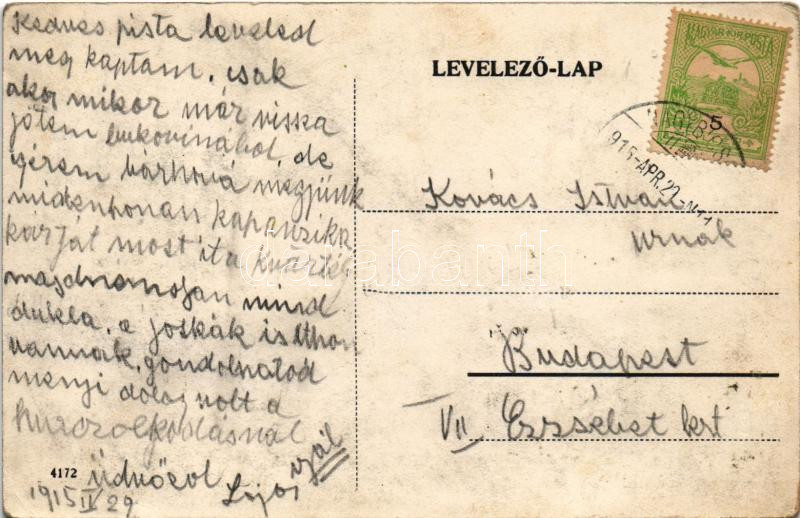 Kedves pista leveled
meg kaptam, csak
akor mikor már vissza
jötem bukovinából, de
gérem bárhová megjünk
midenhonan kap
kárját most it a kvártéj
majdnam mind
dukla, a joskák is itthon
vannak, gondolhatod
menyi dolog volt a
hurczolkodásnál
Üdvözöl Lajos
1915 II/29
4172
LEVELEZŐ-LAP
MAGYAR KIR. POSTA
5
915-APR.22
Kovács Istvan
urnak
Budapest
VII Erzsébet krt